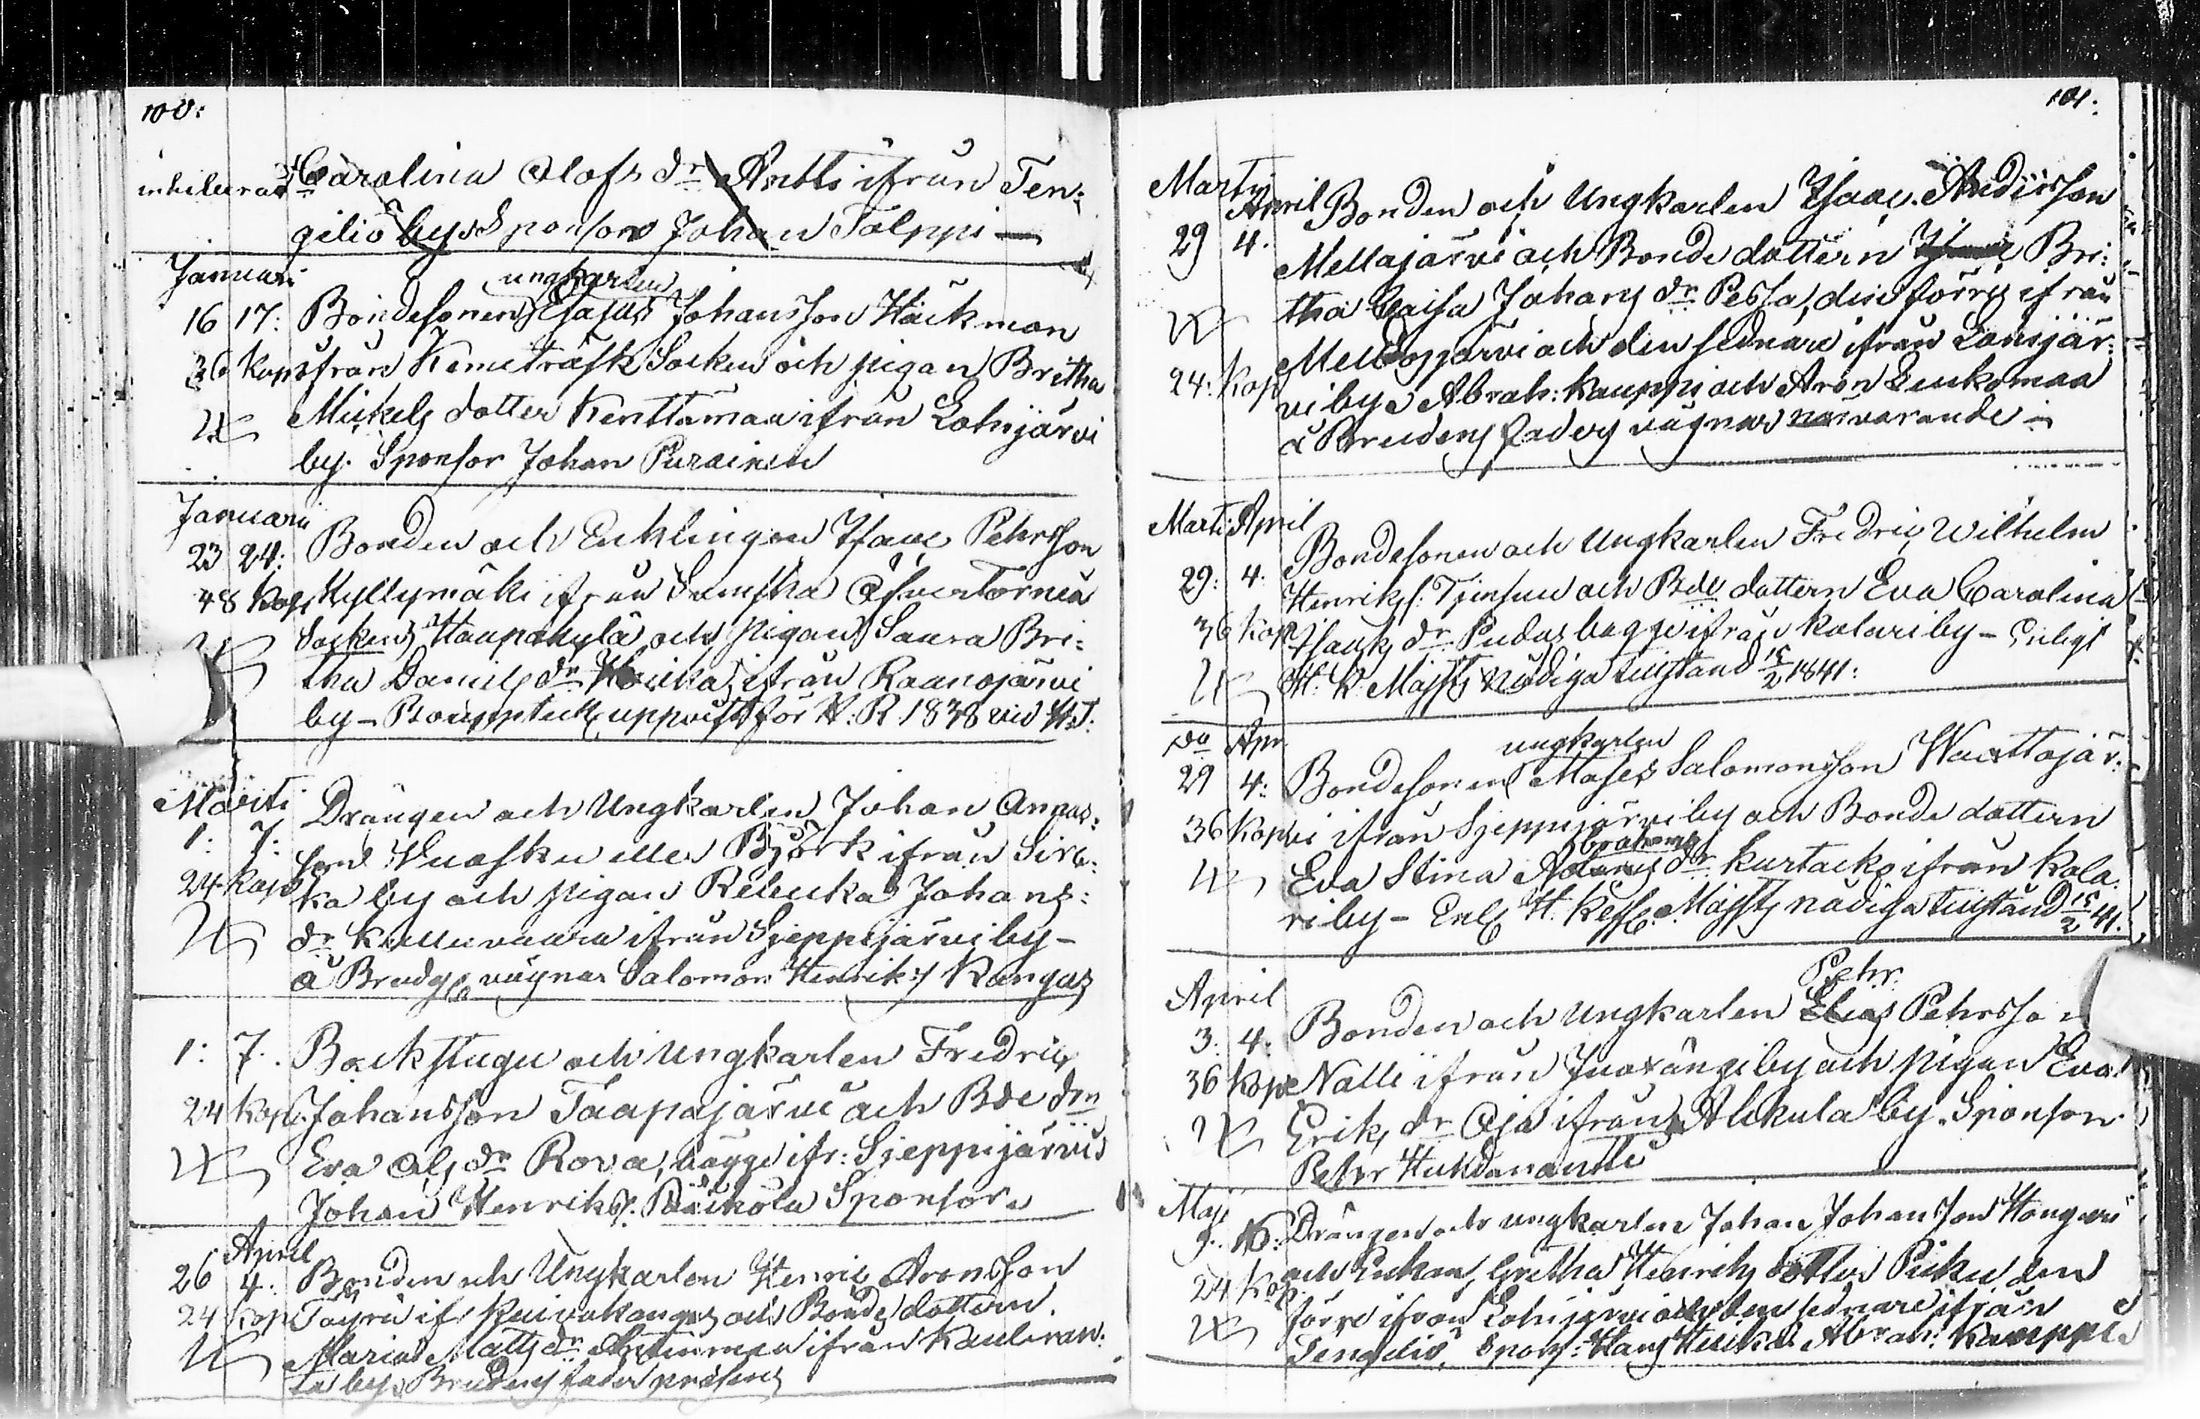 100:
inhiberad Carolina Olofs dr Antti ifrån Ten-
geliö by Sponsor Johan Tolppi —
Januari
ungkarlen
16 17: Bondesonen Esajas Johansson Häckman
36 Kop ifrån Kemiträsk Socken och pigan Britha
Mickels dotter Kenttämaa ifrån Lohijärvi
by. Sponsor Johan Purainen
Januari
23 24: Bonden och Enklingen Isaac Pehrsson
48 Kop Kyllymäki ifrån Svenska Öfvertorneå
Sockens Haapakylä och pigan Saara Bri-
tha Daniels dr ifrån Raanojärvi
by — Bouppteckn uppvist för H: R 1838 vid H.T.
Marti
1: 7: Drängen och Ungkarlen Johan Annas-
son Vuasku eller Björk ifrån Sirk-
24 Kop ka by och pigan Rebecka Johans-
dr Kalluvaara ifrån Sjeppijärvi by —
å Brudgs vägnar Salomon Henriks Kangas
1: 7. Backstugu och Ungkarlen Fredric
24 Kop. Johansson Taapajärvi och Bde drn
Eva Ols dr Rova, bägge ifr: Sjeppijärvi
Johan Henriks. Räikölä Sponsor
April
26 4. Bonden och Ungkarlen Henric Aronsson
24 Kop if Kuivakangas och Bonde dottern
Maria Matts dr ifrån Kauliran-
ta by. Brudens fader presens
101:
Martii
April Bonden och Ungkarlen Isaac Andersson
29 4. Mellajärvi och Bonde dottern Bri-
tha Caisa Johans dr Pessa, den förre ifrån
Mellajärvi och den sednare ifrån Lohijär-
24: Kop vi by Abrah: Kauppi och Aron Leukomaa
å Brudens faders vägnar närvarande —
Marti April
Bondesonen och Ungkarlen Fredric Wilhelm
29: 4. Henriks. och Bde dottern Eva Carolina
36 Kop Isaks dr Pudas bägge ifrån Kolari by — Enligt
H. K. Majsts nådiga tillstånd 15/2 1841:
do Apr
ungkarlen
29 4: Bondesonen Moses Salomonsson Waattojär-
36 Kop vi ifrån Sjeppijärvi by och Bonde dottern
brahams
Eva Stina A dr Kurtacko ifrån Kola-
ri by — Enl H. Kejs. Majsts nådiga tillstånd 15/2 41.
April
Pehr
3. 4. Bonden och Ungkarlen Elias Pehrsson
36 Kop Nalli ifrån Juoxängi by och pigan Eva
Eriks dr Oja ifrån Alkula by. Sponsor
Peter Huhdanantti
Maji
9. 16: Drängen och ungkarlen Johan Johansson Hangas
och Enkan Gretha Henriks dotter den
24 Kop förre ifrån Lohijärvi och den sednare ifrån
Tengeliö, Spons: Hans Heikki Abrah: Kauppi